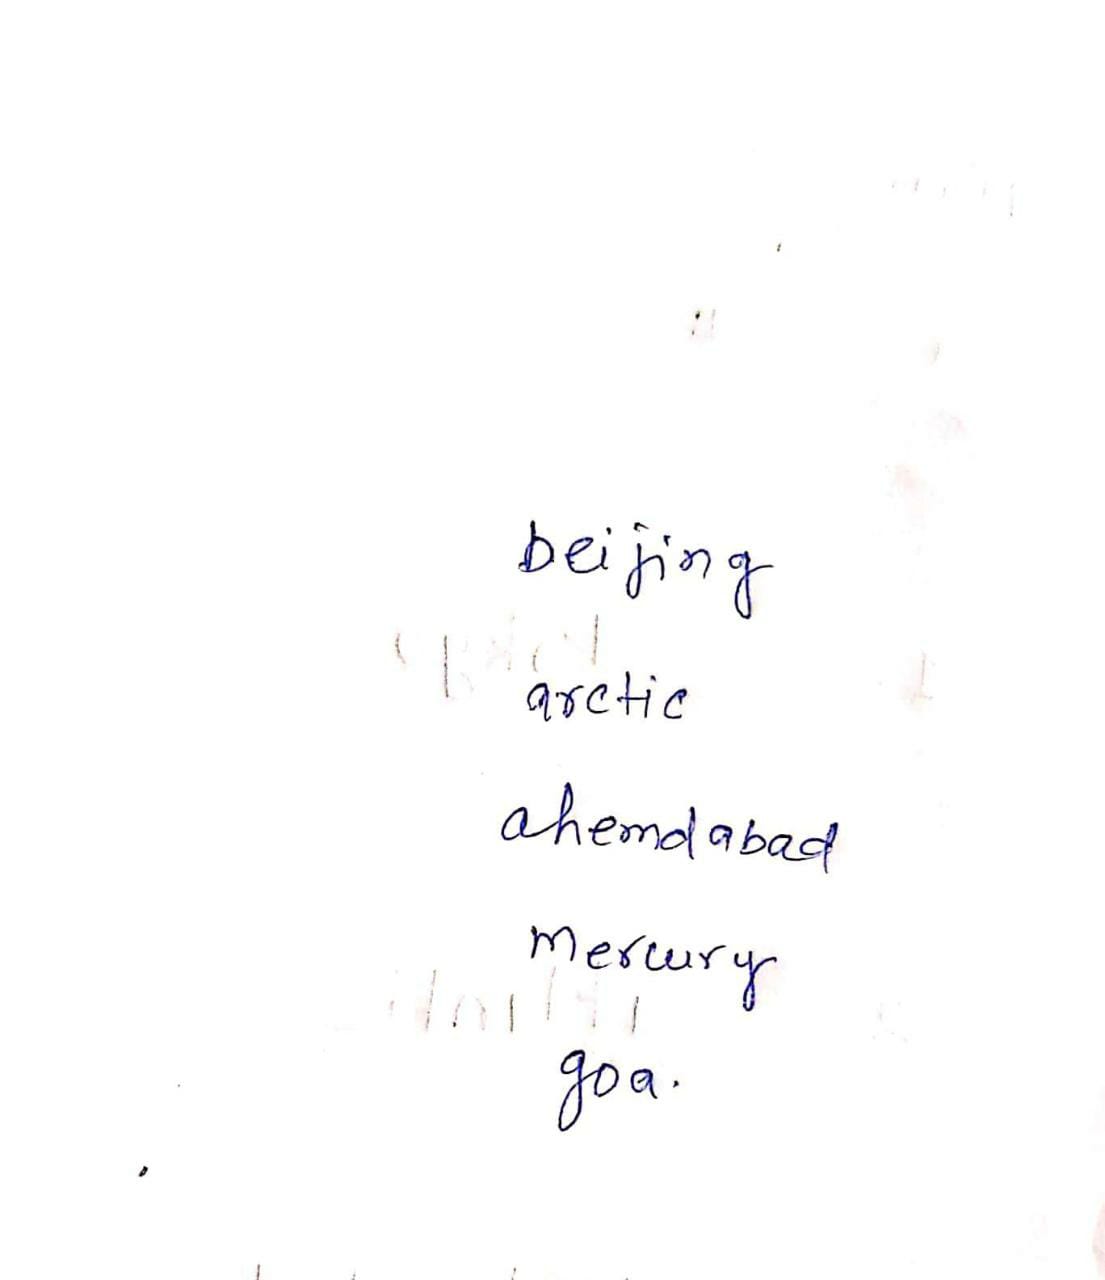 beijing
arctic
ahemdabad
mercury
goa.